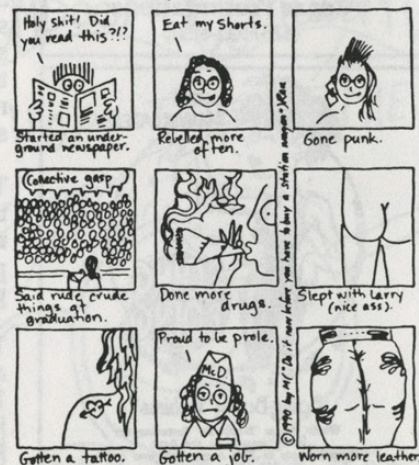 Holy shit! Did
you read this?!?
Started an under-
ground newspaper.
Eat my shorts.
Rebelled more
often.
Gone punk.
Collective gasp
Said rude, crude
things at
graduation.
Done more
drugs.
Slept with Larry
(nice ass).
Gotten a tattoo.
Proud to be prole.
McD
Gotten a job.
Worn more leather
©1990 by M("Do it now before you have to buy a station wagon")